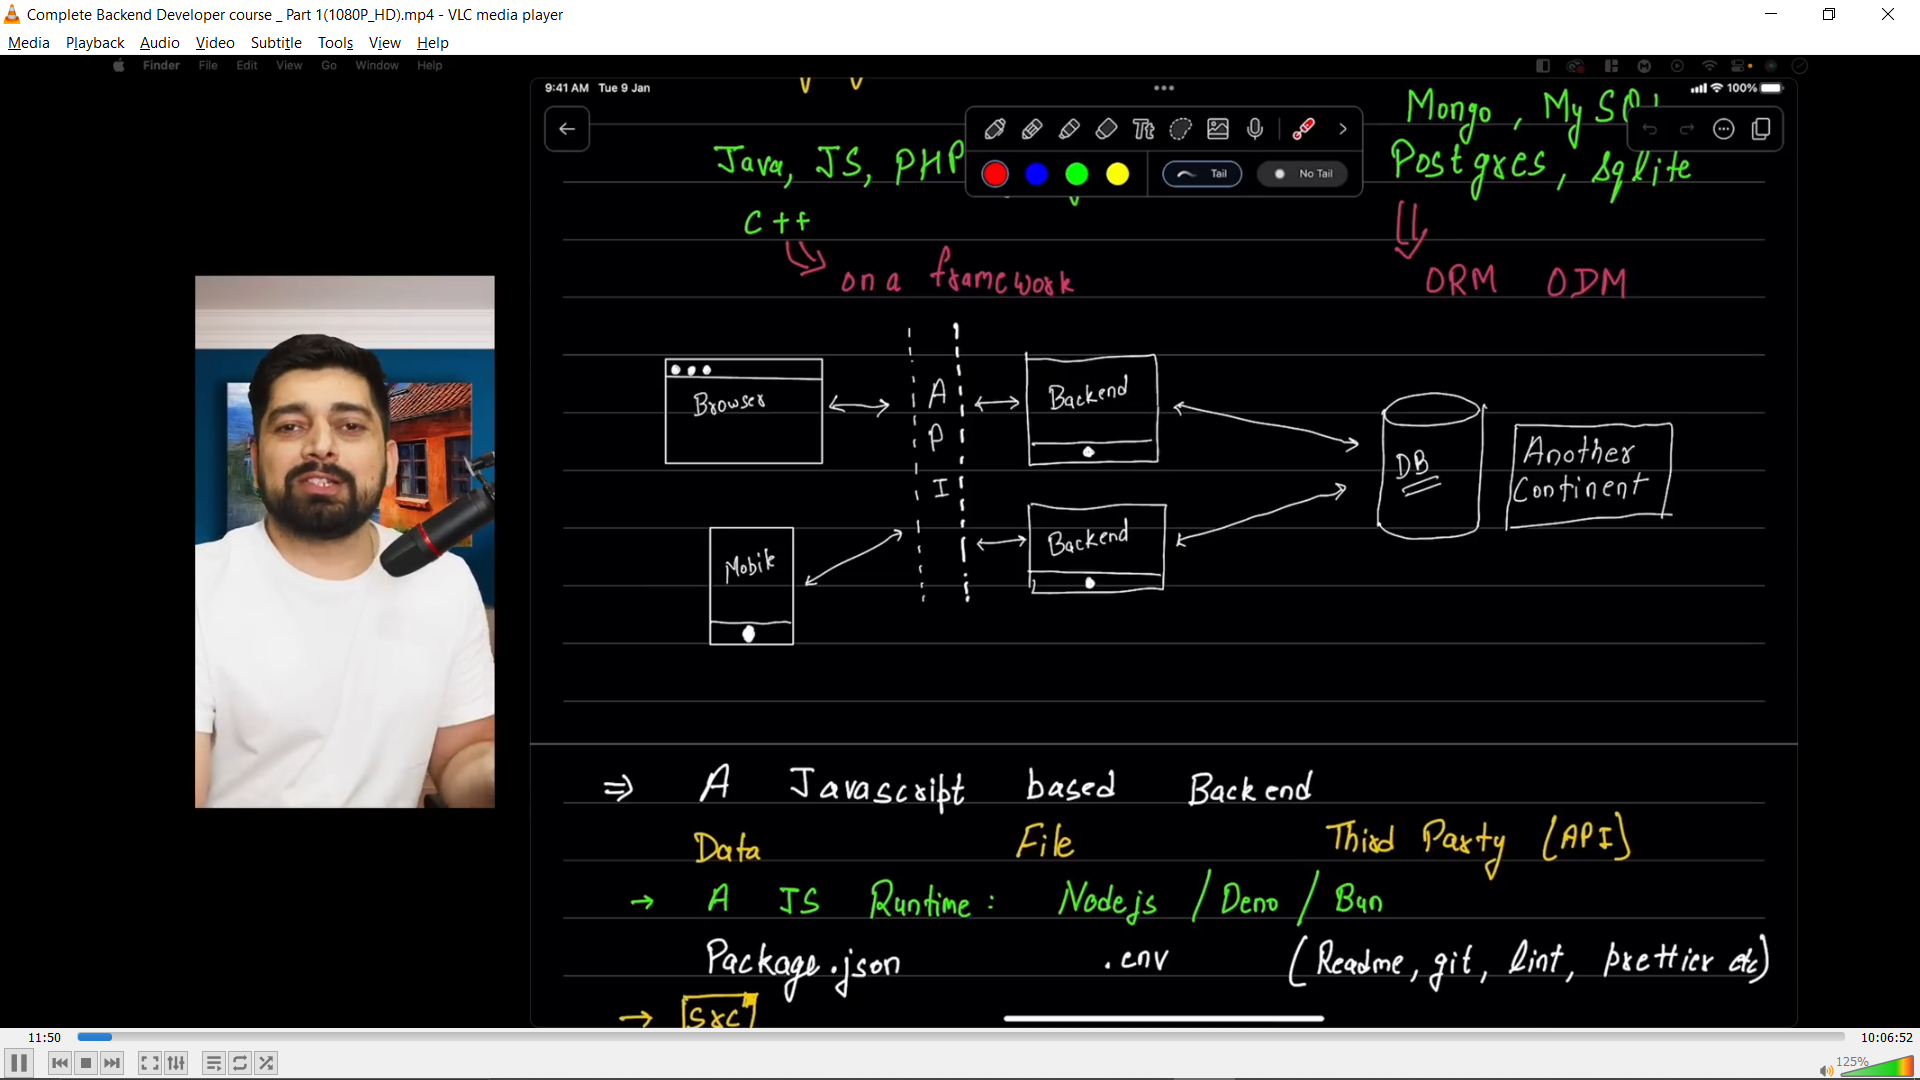 Complete Backend Developer course _ Part 1(1080P_HD).mp4 - VLC media player
Media Playback Audio Video Subtitle Tools View Help
Finder File Edit View Go Window Help
9:41 AM Tue 9 Jan
100%
Mongo, My SQL
Java, JS, PHP
Postgres, sqlite
Tail
No Tail
C++
on a framework
ORM ODM
Browser
API
Backend
DB
Another
Continent
Mobile
Backend
⇒ A Javascript based Backend
Data File Third Party (API)
→ A JS Runtime: Nodejs / Deno / Bun
Package.json .env (Readme, git, lint, prettier etc)
→ src
11:50
10:06:52
125%